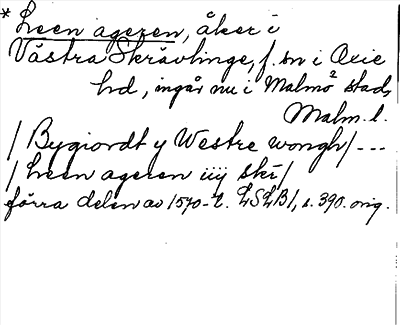 * Leen ageren, åker i
Västra Skrävlinge, f. sn i Oxie
hd, ingår nu i Malmö stad,
Malm. l.
/ Bygiordt y Westre wongh / ---
/ Leen ageren iiij skr /
förra delen av 1570-t. LSLB1, s. 390. orig.